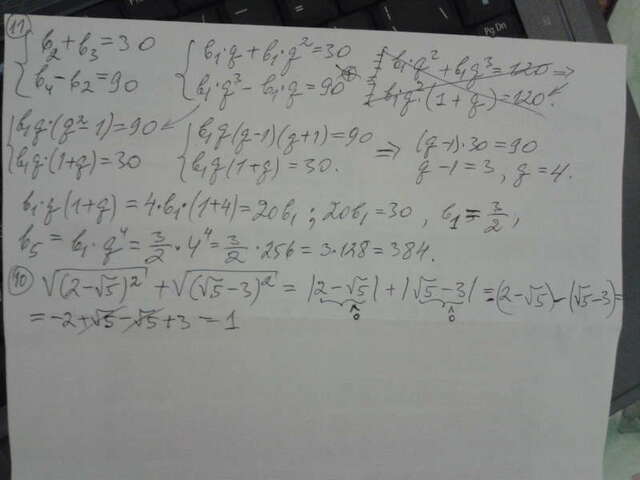 11) { b₂ + b₃ = 30
b₄ - b₂ = 90
{ b₁·q + b₁·q² = 30
b₁·q³ - b₁·q = 90
{ b₁·q² + b₁q³ = 120 ⇒
b₁·q²(1+q) = 120.
{ b₁q·(q²-1) = 90
b₁q·(1+q) = 30
{ b₁q(q-1)(q+1) = 90
b₁q(1+q) = 30.
⇒ (q-1)·30 = 90
q-1 = 3, q = 4.
b₁·q(1+q) = 4·b₁·(1+4) = 20b₁ ; 20b₁ = 30 , b₁ = 3/2 ,
b₅ = b₁·q⁴ = 3/2 · 4⁴ = 3/2 · 256 = 3·128 = 384.
10) √(2-√5)² + √(√5-3)² = |2-√5| + |√5-3| = -(2-√5) - (√5-3) =
^0 ^0
= -2+√5-√5+3 = 1
PgDn